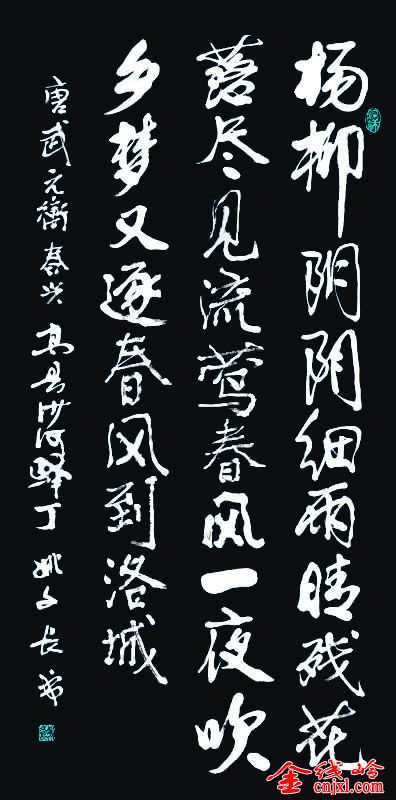 杨柳阴阴细雨晴残花
落尽见流莺春风一夜吹
乡梦又逐春风到洛城
唐武元衡春兴 高县沙河驿丁 姚文长
金线岭
cnjxl.com